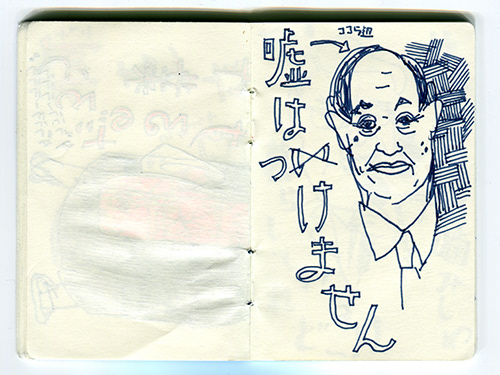 ココら辺
嘘はつけません